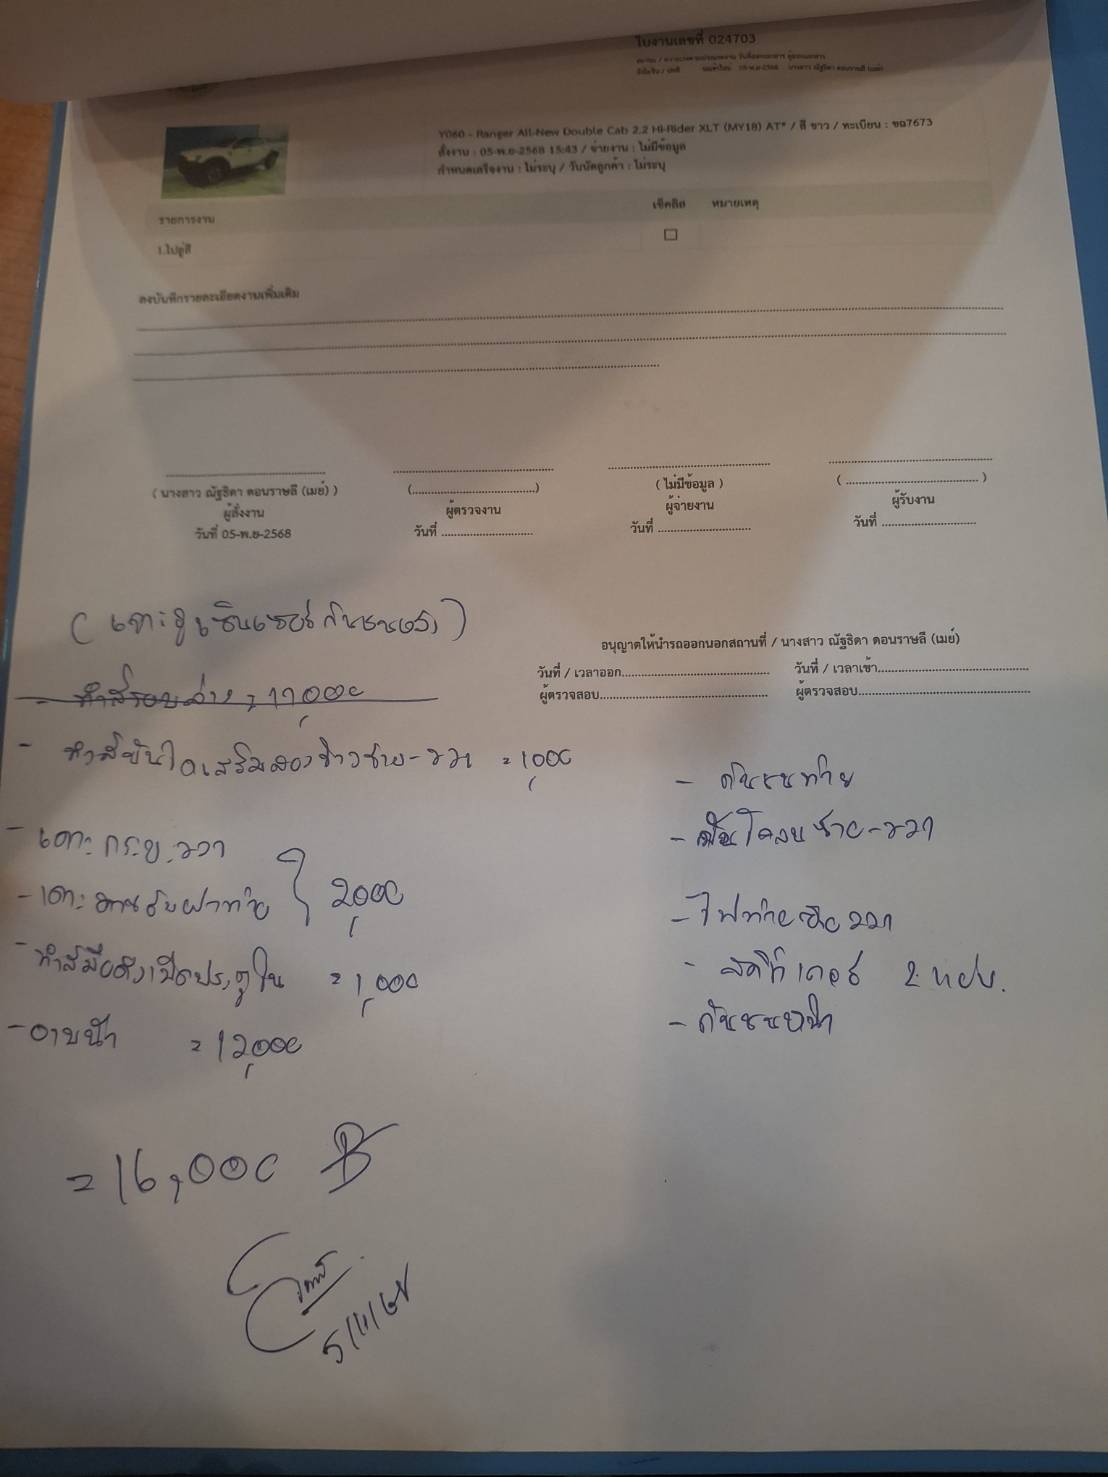 ใบงานเลขที่ 024703
Y060 - Ranger All-New Double Cab 2.2 Hi-Rider XLT (MY18) AT* / สี ขาว / ทะเบียน : ขฉ7673
สั่งงาน : 05-พ.ย-2568 15:43 / จ่ายงาน : ไม่มีข้อมูล
กำหนดเสร็จงาน : ไม่ระบุ / วันนัดลูกค้า : ไม่ระบุ
รายการงาน เช็คลิส หมายเหตุ
1.ไปอู่สี
ลงบันทึกรายละเอียดงานเพิ่มเติม
( นางสาว ณัฐธิดา ดอนราษลี (เมย์) ) (....................) ( ไม่มีข้อมูล ) ( .................... )
ผู้สั่งงาน ผู้ตรวจงาน ผู้จ่ายงาน ผู้รับงาน
วันที่ 05-พ.ย-2568 วันที่ .................... วันที่ .................... วันที่ ....................
อนุญาตให้นำรถออกนอกสถานที่ / นางสาว ณัฐธิดา ดอนราษลี (เมย์)
วันที่ / เวลาออก.................... วันที่ / เวลาเข้า....................
ผู้ตรวจสอบ.................... ผู้ตรวจสอบ....................
(เจาะรูเซ็นเซอร์กันชนหลัง)
- ทำสีรอบคัน = 17,000
- ทำสีบันไดเสริมสองข้างซ้าย-ขวา = 1,000
- เคาะกระบะขวา
- เคาะคานรับฝาท้าย } 2,000
- ทำสีมือดึงเปิดประตูใน = 1,000
- อาบน้ำ = 12,000
= 16,000 ฿
5/11/68
- กันชนท้าย
- ซ้าย-ขวา
- ไฟท้ายขวา
- สติ๊กเกอร์ 2 แผ่น.
- กันชนหน้า